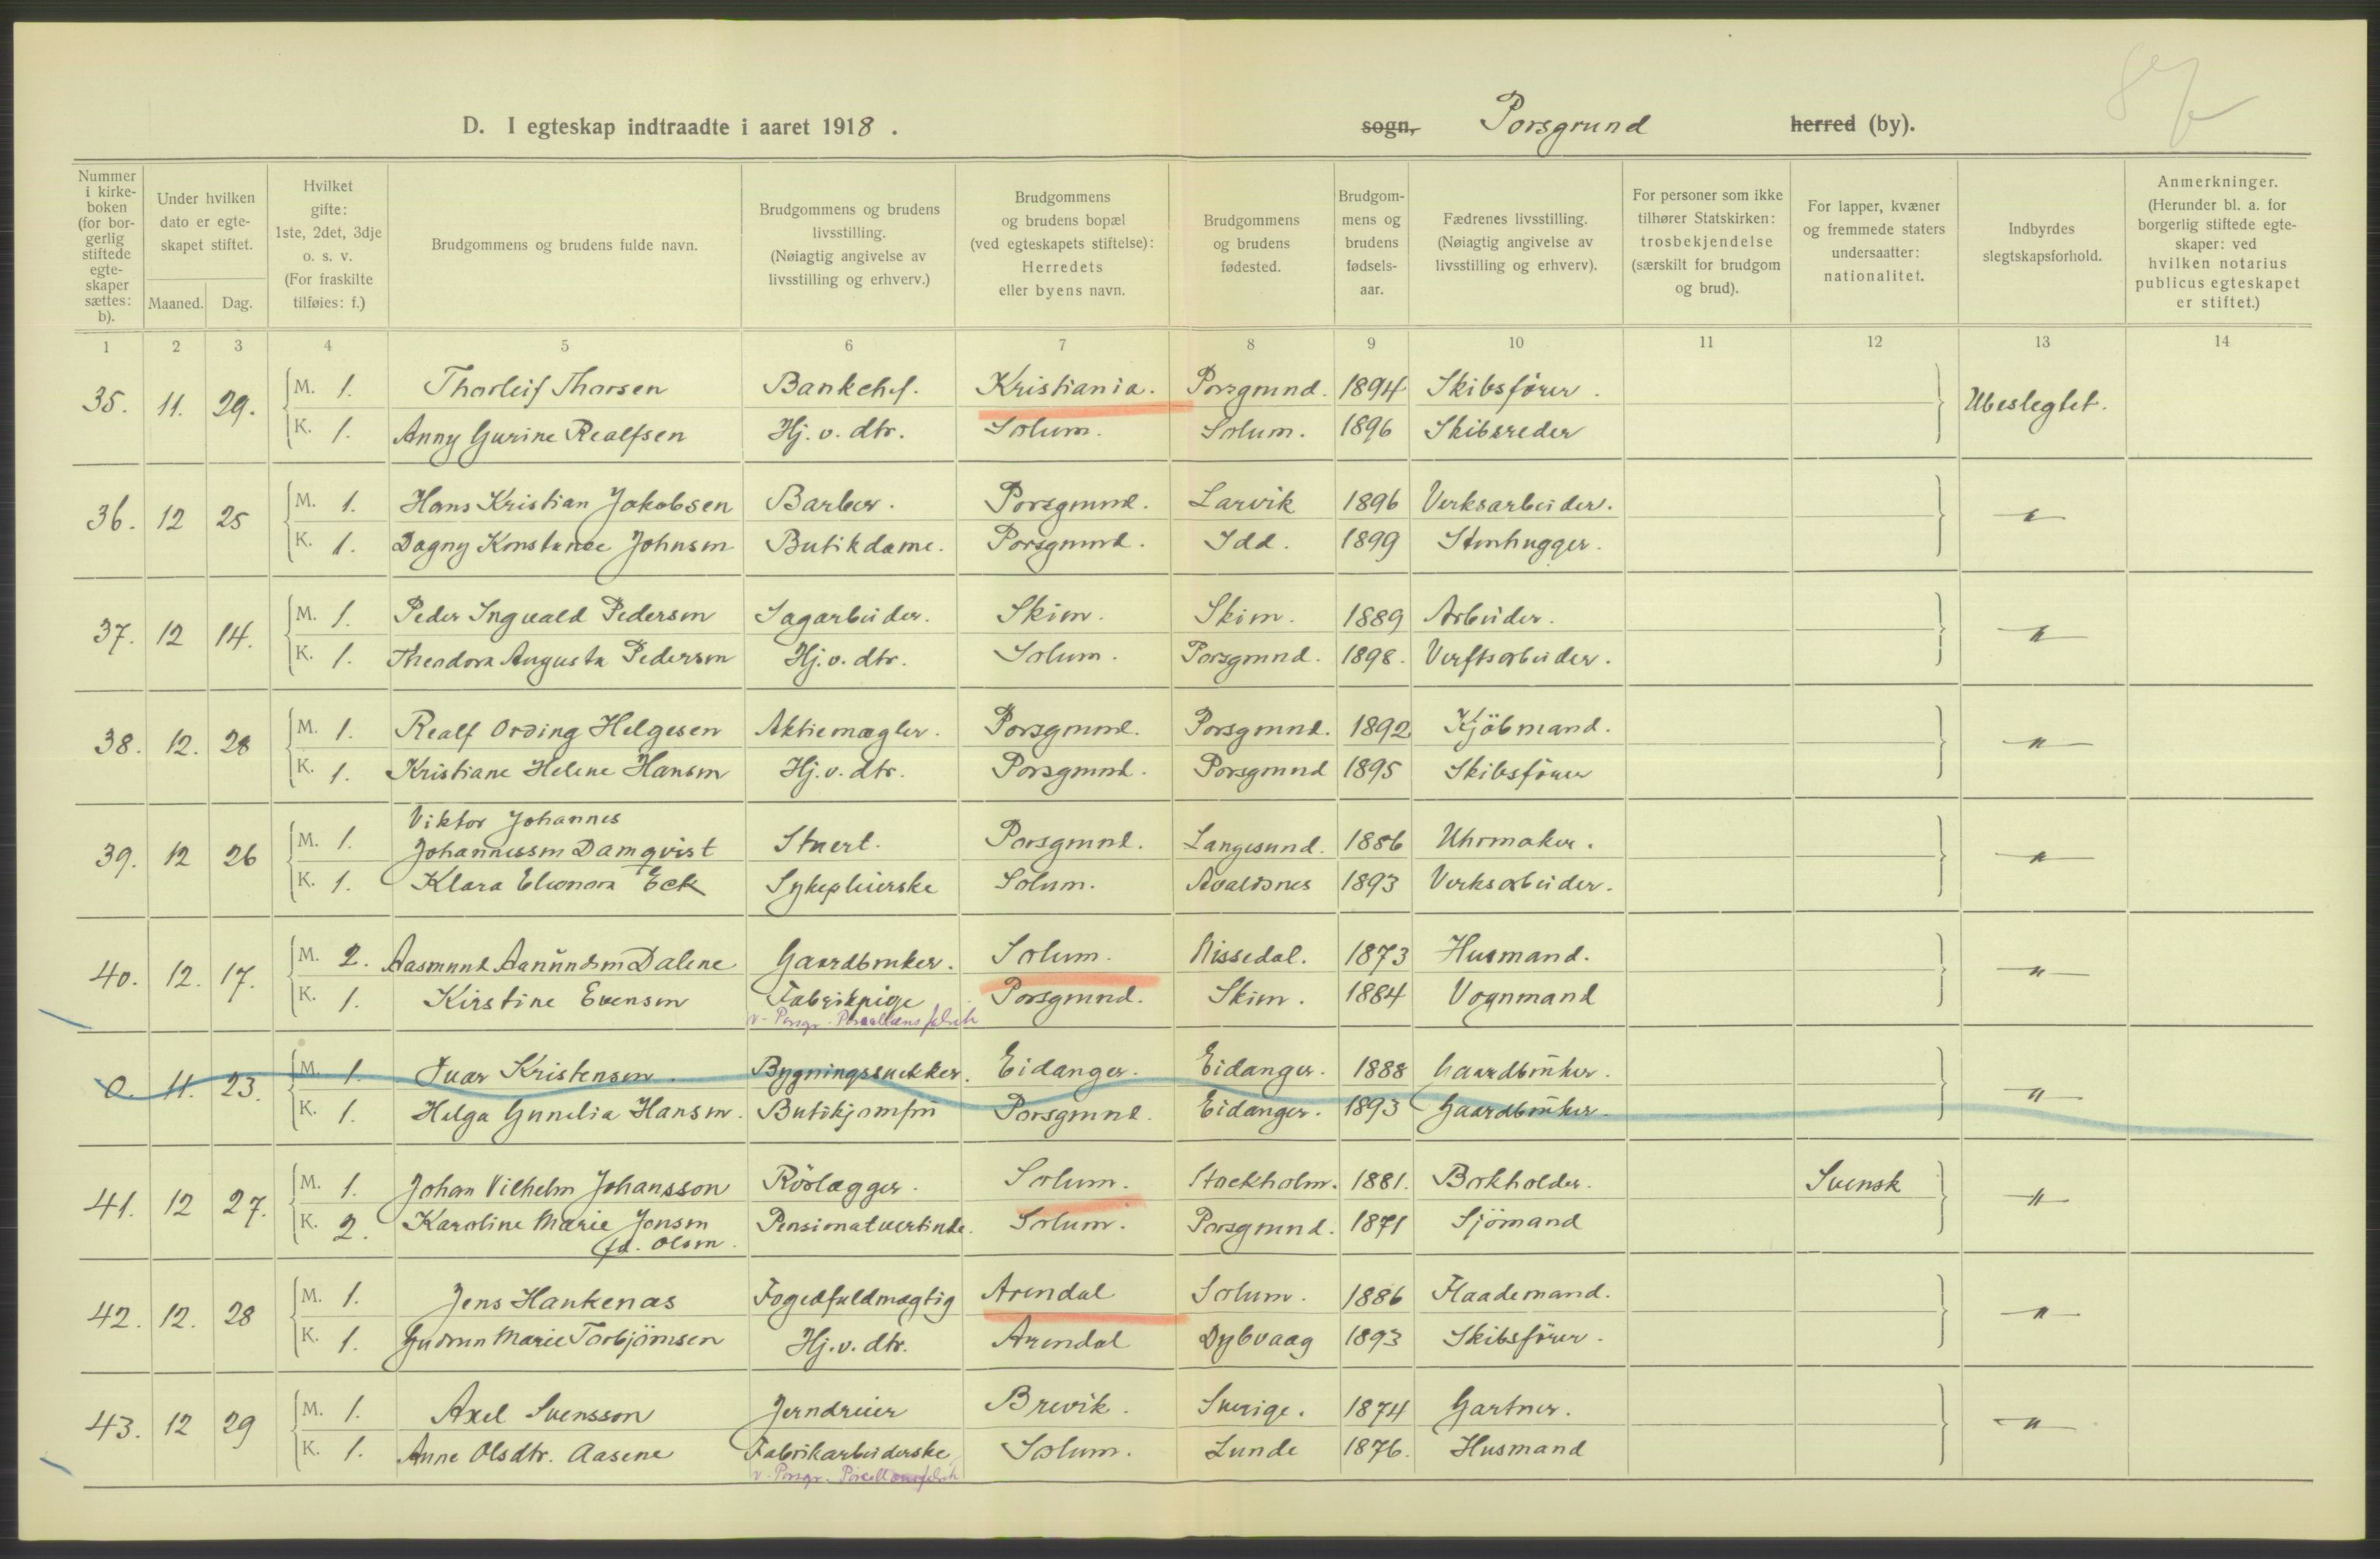 D. I egteskap indtraadte i aaret 1918. sogn, Porsgrund herred (by).
Nummer i kirke-boken (for bor-gerlig stiftede egte-skaper sættes: b).
Under hvilken dato er egte-skapet stiftet.
Maaned. Dag.
Hvilket gifte: 1ste, 2det, 3dje o. s. v. (For fraskilte tilføies: f.)
Brudgommens og brudens fulde navn.
Brudgommens og brudens livsstilling. (Nøiagtig angivelse av livsstilling og erhverv.)
Brudgommens og brudens bopæl (ved egteskapets stiftelse): Herredets eller byens navn.
Brudgommens og brudens fødested.
Brudgom-mens og brudens fødsels-aar.
Fædrenes livsstilling. (Nøiagtig angivelse av livsstilling og erhverv).
For personer som ikke tilhører Statskirken: trosbekjendelse (særskilt for brudgom og brud).
For lapper, kvæner og fremmede staters undersaatter: nationalitet.
Indbyrdes slegtskapsforhold.
Anmerkninger. (Herunder bl. a. for borgerlig stiftede egte-skaper: ved hvilken notarius publicus egteskapet er stiftet.)
1 2 3 4 5 6 7 8 9 10 11 12 13 14
35. 11. 29. M. 1. Thorleif Thorsen Bankchef. Kristiania. Porsgrund. 1894 Skibsfører. Ubeslegtet.
K. 1. Anny Gurine Realfsen Hj. v. dtr. Solum. Solum. 1896 Skibsreder
36. 12 25 M. 1. Hans Kristian Jakobsen Barber. Porsgrund. Larvik 1896 Verksarbeider. - " -
K. 1. Dagny Konstance Johnsen Butikdame. Porsgrund. Idd. 1899 Stenhugger.
37. 12 14. M. 1. Peder Ingvald Pedersen Sagarbeider. Skien. Skien. 1889 Arbeider. - " -
K. 1. Theodora Augusta Pedersen Hj. v. dtr. Solum. Porsgrund. 1898. Verftsarbeider.
38. 12. 28 M. 1. Realf Ording Helgesen Aktiemægler. Porsgrund. Porsgrund. 1892 Kjöbmand. - " -
K. 1. Kristiane Helene Hansen Hj. v. dtr. Porsgrund. Porsgrund 1895 Skibsfører
39. 12 26 M. 1. Viktor Johannes
Johannessen Damqvist Stuert. Porsgrund. Langesund. 1886 Uhrmaker. - " -
K. 1. Klara Eleonora Eek Sykepleierske Solum. Avaldsnes 1893 Verksarbeider.
40. 12. 17. M. 2. Aasmund Aanundsen Dalene Gaardbruker. Solum. Nissedal. 1873 Husmand. - " -
K. 1. Kirstine Evensen Fabrikpige Porsgrund. Skien. 1884 Vognmand
v. Porsgr. Porcellænsfabrik
0. 11. 23. M. 1. Ivar Kristensen. Bygningssnekker. Eidanger. Eidanger. 1888 Gaardbruker. - " -
K. 1. Helga Gunelia Hansen. Butikjomfru Porsgrund. Eidanger. 1893 Gaardbruker.
41. 12 27. M. 1. Johan Vilhelm Johansson Rörlægger. Solum. Stockholm. 1881. Bokholder. Svensk - " -
K. 2. Karoline Marie Jensen Pensionatvertinde. Solum. Porsgrund. 1871 Sjömand
fd. Olsen.
42. 12. 28 M. 1. Jens Haukenæs Fogedfuldmægtig Arendal Solum. 1886 Flaademand. - " -
K. 1. Gudrun Marie Torbjörnsen Hj. v. dtr. Arendal Dybvaag 1893 Skibsfører.
43. 12 29 M. 1. Axel Svensson Jerndreier Brevik. Sverige. 1874 Gartner. - " -
K. 1. Anne Olsdtr. Aasene Fabrikarbeiderske Solum. Lunde 1876. Husmand
v. Porsgr. Porcellænsfabrik